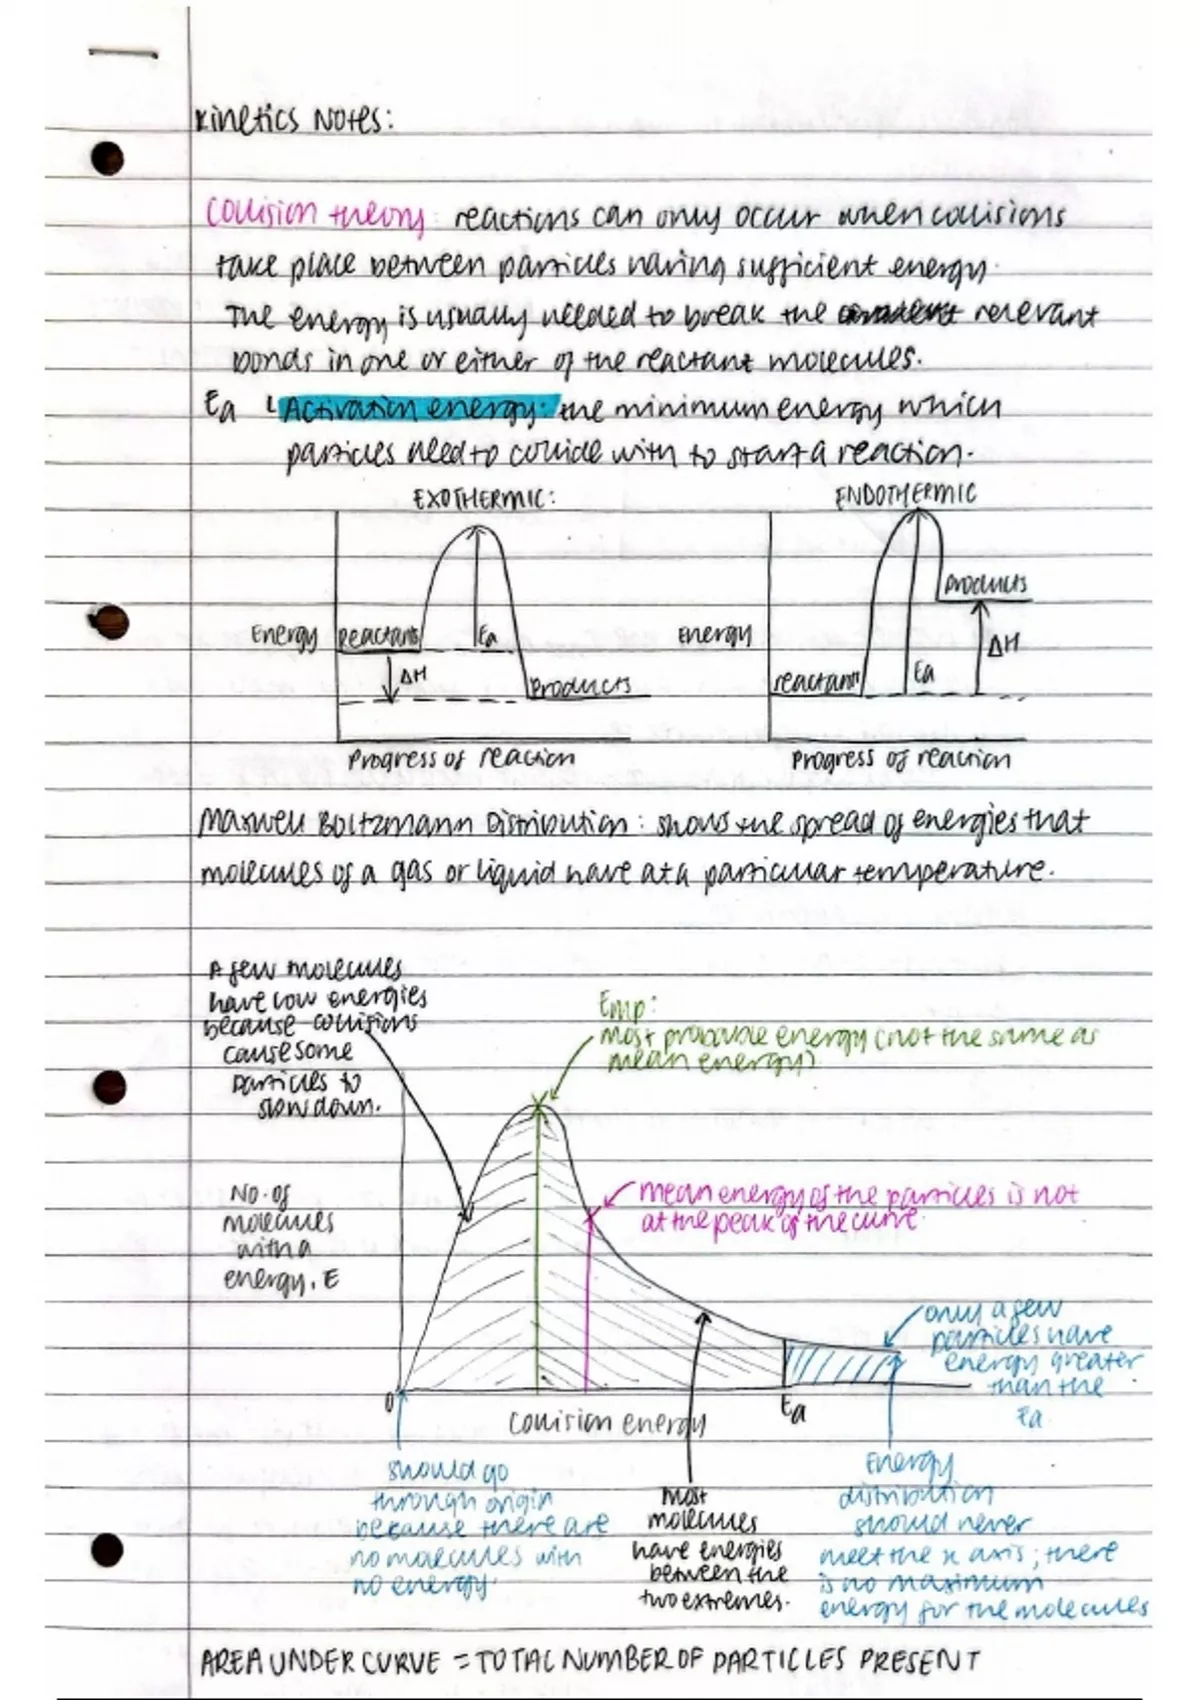 Kinetics Notes:
Collision theory: reactions can only occur when collisions
take place between particles having sufficient energy.
The energy is usually needed to break the relevant
bonds in one or either of the reactant molecules.
Ea ↳ Activation energy: the minimum energy which
particles need to collide with to start a reaction.
EXOTHERMIC:
Energy
Reactants
Ea
ΔH
Products
Progress of reaction
ENDOTHERMIC
Energy
Products
ΔH
Ea
reactants
Progress of reaction
Maxwell Boltzmann Distribution: shows the spread of energies that
molecules of a gas or liquid have at a particular temperature.
A few molecules
have low energies
because collisions
cause some
particles to
slow down.
Emp:
most probable energy (not the same as
mean energy)
No. of
molecules
with a
energy, E
mean energy of the particles is not
at the peak of the curve
only a few
particles have
energy greater
than the
Ea
0
Collision energy
Ea
should go
through origin
because there are
no molecules with
no energy.
most
molecules
have energies
between the
two extremes.
Energy
distribution
should never
meet the x axis; there
is no maximum
energy for the molecules
AREA UNDER CURVE = TOTAL NUMBER OF PARTICLES PRESENT